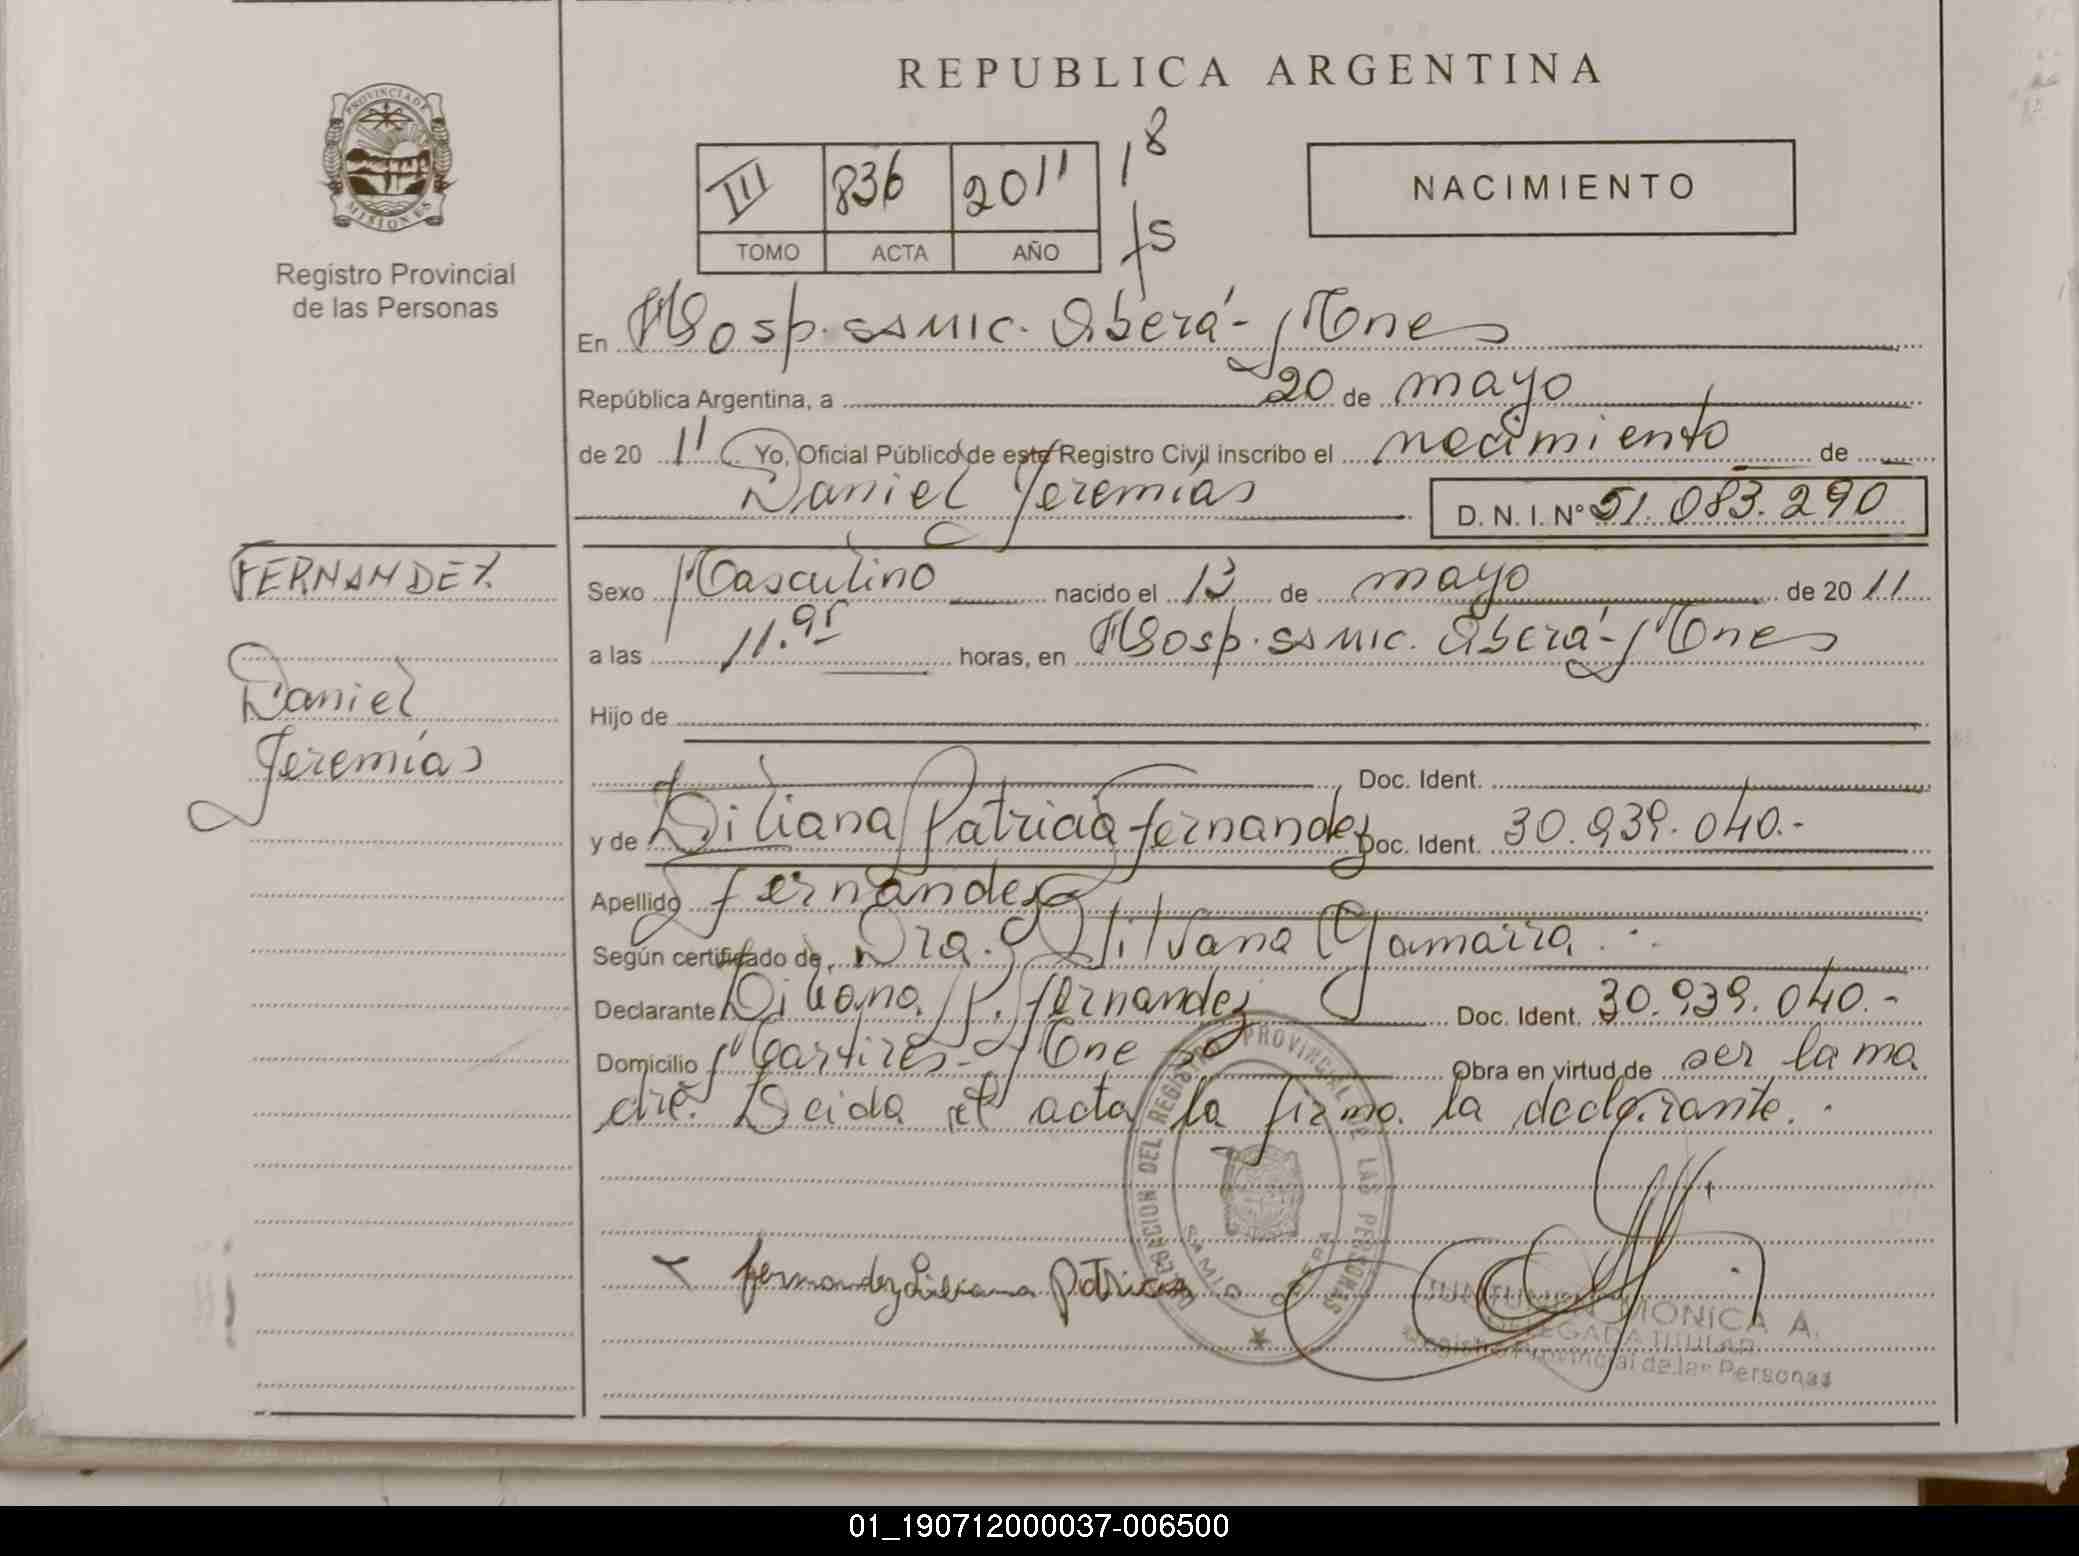 REPUBLICA ARGENTINA
PROVINCIA DE
MISIONES
Registro Provincial
de las Personas
III 836 2011
TOMO ACTA AÑO
18
NACIMIENTO
En Hosp. SAMIC. Oberá - Mnes
República Argentina, a 20 de mayo
de 20 11 Yo, Oficial Público de este Registro Civil inscribo el nacimiento de
Daniel Jeremías
D. N. I. Nº 51.083.290
FERNANDEZ
Daniel
Jeremías
Sexo Masculino nacido el 13 de mayo de 20 11
a las 11. horas, en Hosp. SAMIC. Oberá - Mnes
Hijo de
Doc. Ident.
y de Liliana Patricia Fernandez Doc. Ident. 30.939.040.-
Apellido Fernandez
Según certificado de Dra. Silvana Gamarra
Declarante Liliana P. Fernandez Doc. Ident. 30.939.040.-
Domicilio Martires - Mnes Obra en virtud de ser la ma
dre. Leida el acta la firma la declarante.
DELEGACION DEL REGISTRO PROVINCIAL DE LAS PERSONAS
SAMIC OBERA
Fernandez Liliana Patricia
MONICA A.
DELEGADA TITULAR
Registro Provincial de las Personas
01_190712000037-006500